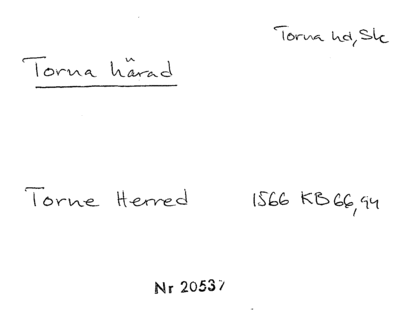 Torna hd, Sk
Torna härad
Torne Herred 1566 KB 66, 94
Nr 20537